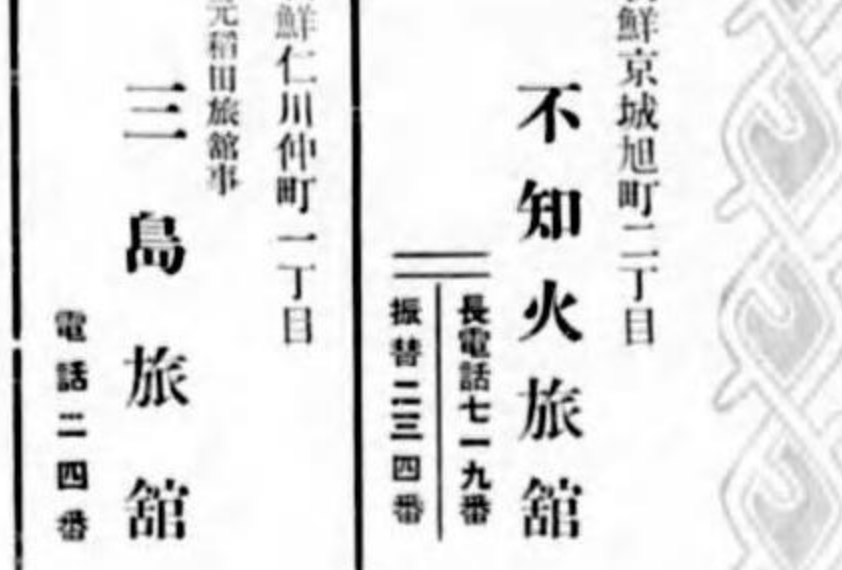 鮮京城旭町二丁目
不知火旅舘
長電話七一九番
振替二三四番
鮮仁川仲町一丁目
元稻田旅舘事
三島旅舘
電話二四番